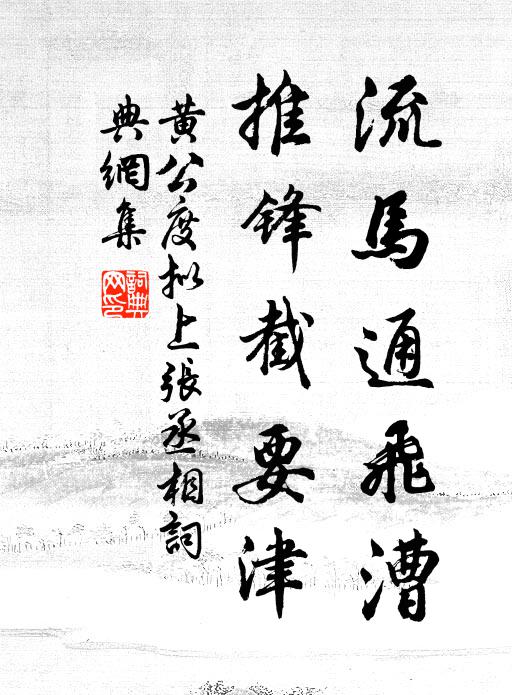 流馬通飛漕
推鋒截要津
黃公度拟上張丞相詞
典網集
詞典网印